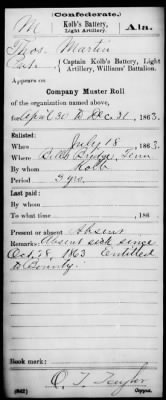 (Confederate.)
M Kolb's Battery, Light Artillery. Ala.
Thos. Martin
Captain Kolb's Battery, Light Artillery, Williams' Battalion.
Appears on
Company Muster Roll
of the organization named above,
for Sept 30 to Dec. 31, 1863.
Enlisted:
When July 18, 1863.
Where Bridge, Tenn
By whom Kolb
Period 3 yrs.
Last paid:
By whom
To what time , 186 .
Present or absent Absent
Remarks: Absent sick since
Oct. 8, 1863 Entitled
to Bounty.
Book mark:
(642) Copyist.